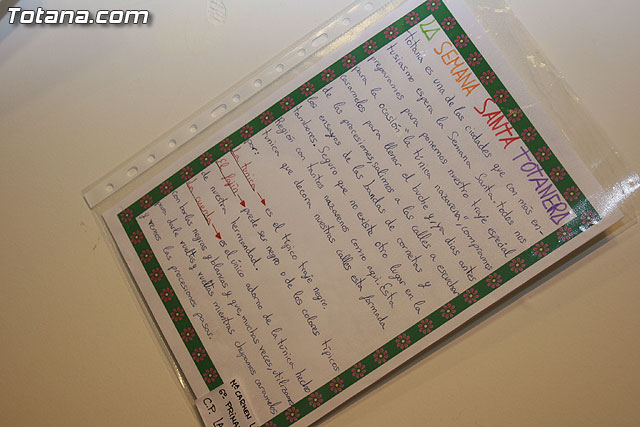 Totana.com
LA SEMANA SANTA TOTANERA
Totana es una de las ciudades que con más en-
tusiasmo espera la Semana Santa. Todos nos
preparamos para ponernos nuestro traje especial
para la ocasión "la túnica nazarena", compramos
caramelos para llenar el buche y, días antes
de las procesiones, salimos a las calles a escuchar
los ensayos de las bandas de cornetas y
tambores. Seguro que no existe otro lugar en la
Región con tantos nazarenos como aquí. Esta
túnica que decora nuestras calles esta formada
por:
túnica → es el típico traje negro.
el fajín → puede ser negro o de los colores típicos
de nuestra hermandad.
la cuerda → es el único adorno de la túnica hecho
con borlas negras y blancas y que, muchas veces, utilizamos
para darle vueltas y vueltas mientras chupamos caramelos
y vemos las procesiones pasar.
Mª CARMEN
6º PRIMA
C.P. LA